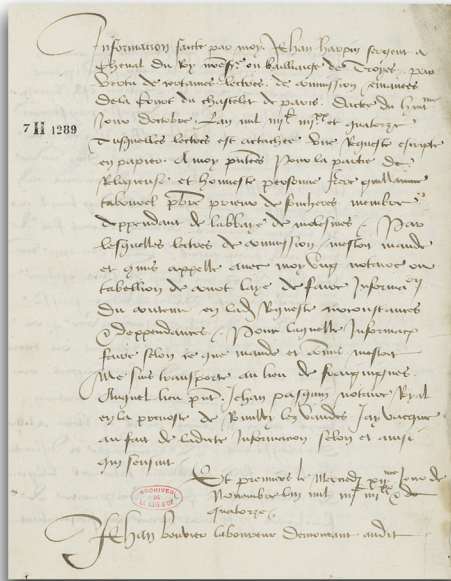 Informacion faicte par moy Jehan happin sergent a
cheval du Roy nre sr ou bailliage de Troyes par
vertu de certaines lectres de commission emanees
de la court du chastelet de paris dactee du
7 H 1289
jour doctobre Lan mil iiijc iiijxx et quatorze
Ausquelles lectres est actachee une Requeste escripte
en papier A moy pntes pour la partie de
Religieuse et honneste personne frere guillaume
pbre prieur de membre
deppendant de labbaye de molesmes Par
lesquelles lectres de commission mestoit mande
et commis appelle avec moy ung notaire ou
tabellion de court laye de faire Informacion
du contenu en lad Requeste circonstances
et deppendances Pour laquelle Informacion
faire selon ce que mande et commis mestoit
Me suis transporte au lieu de
Auquel lieu pnt Jehan pasquin notaire Royal
en la prevoste de Jay vacque
au fait de ladicte Informacion selon et ainsi
quil sensuit
Et premiers le Mercredj xijme jour de
Novembre lan mil iiijc iiijxx et
quatorze
ARCHIVES
DE
LA COTE-D'OR
Jehan bouvier laboureur demourant audit